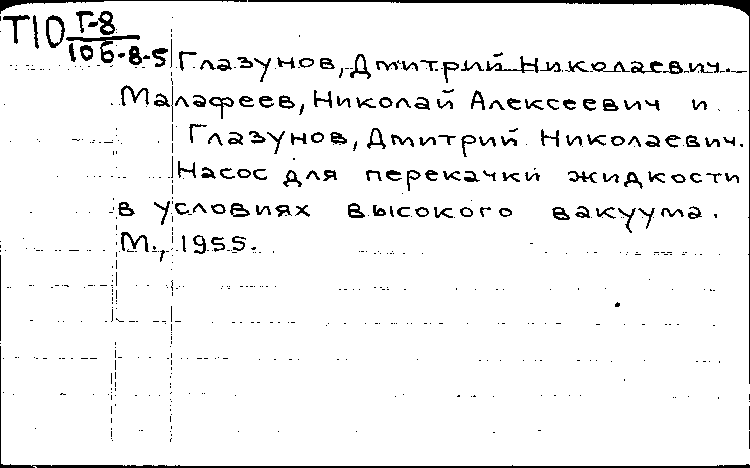 Т10 Г-8
10б-8-5
Глазунов, Дмитрий Николаевич.
Малафеев, Николай Алексеевич и
Глазунов, Дмитрий Николаевич.
Насос для перекачки жидкости
в условиях высокого вакуума.
М., 1955.